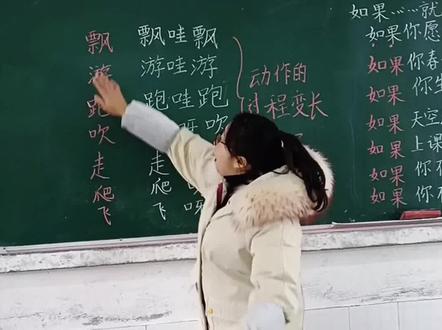 飘 飘哇飘
游 游哇游
跑 跑哇跑
吹 呀吹
走 走
爬 爬
飞 飞 呀
动作的
过程变长
如果……就
如果你愿
如果你春
如果你
如果天空
如果上课
如果你
如果你